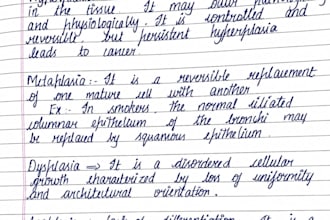 in the tissue It may occur
and physiologically. It is controlled and
reversible, but persistent hyperplasia
leads to cancer
Metaplasia :- It is a reversible replacement
of one mature cell with another
Ex:- In smokers, the normal ciliated
columnar epithelium of the bronchi may
be replaced by squamous epithelium.
Dysplasia ⇒ It is a disordered cellular
growth characterized by loss of uniformity
and architectural orientation.
lack of differentiation. It is a